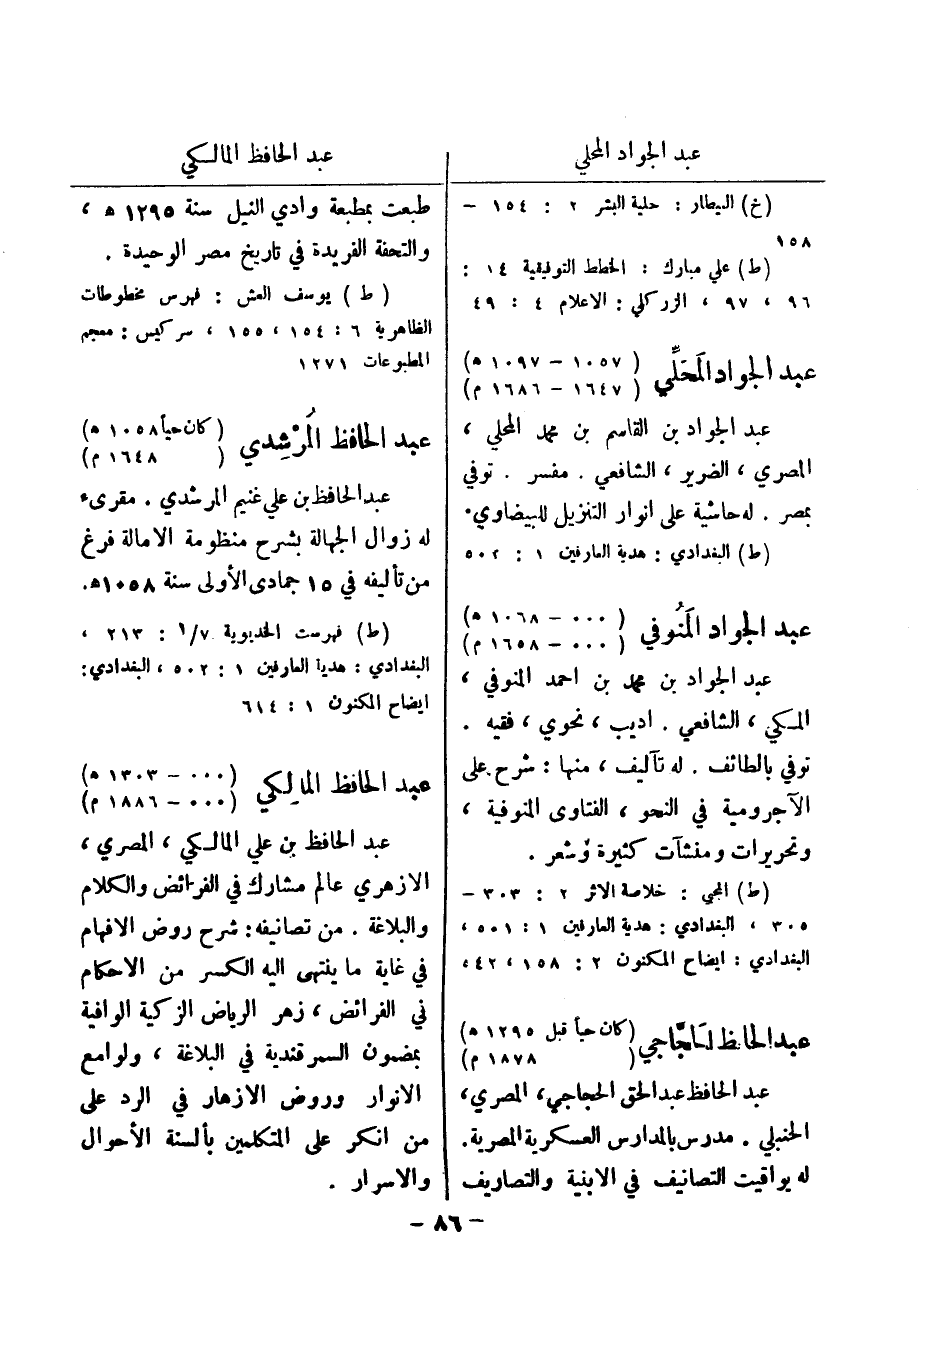 عبد الجواد المحلي
(خ) البيطار : حلية البشر ٢ : ١٥٤ –
١٥٨
(ط) علي مبارك : الخطط التوفيقية ١٤ :
٩٦ ، ٩٧ ، الزركلي : الاعلام ٤ : ٤٩
عبد الجواد المَحَلِّي (١٠٥٧ – ١٠٩٧ ه)
(١٦٤٧ – ١٦٨٦ م)
عبد الجواد بن القاسم بن محمد المحلي ،
المصري ، الضرير ، الشافعي . مفسر . توفي
بمصر . له حاشية على انوار التنزيل للبيضاوي .
(ط) البغدادي : هدية العارفين ١ : ٥٠٢
عبد الجواد المَنُوفي (٠٠٠ – ١٠٦٨ ه)
(٠٠٠ – ١٦٥٨ م)
عبد الجواد بن محمد بن احمد المنوفي ،
المكي ، الشافعي . اديب ، نحوي ، فقيه .
توفي بالطائف . له تآليف ، منها : شرح على
الآجرومية في النحو ، الفتاوى المنوفية ،
وتحريرات ومنشآت كثيرة وشعر .
(ط) المحبي : خلاصة الاثر ٢ : ٣٠٣ –
٣٠٥ ، البغدادي : هدية العارفين ١ : ٥٠١ ،
البغدادي : ايضاح المكنون ٢ : ١٥٨ ، ٤٢ ،
عبد الحافظ الحَجَّاجي (كان حياً قبل ١٢٩٥ ه)
( ١٨٧٨ م)
عبد الحافظ عبد الحق الحجاجي ، المصري ،
الحنبلي . مدرس بالمدارس العسكرية المصرية .
له يواقيت التصانيف في الابنية والتصاريف
عبد الحافظ المالكي
طبعت بمطبعة وادي النيل سنة ١٢٩٥ ه ،
والتحفة الفريدة في تاريخ مصر الوحيدة .
( ط ) يوسف العش : فهرس مخطوطات
الظاهرية ٦ : ١٥٤ ، ١٥٥ ، سركيس : معجم
المطبوعات ١٢٧١
عبد الحافظ المُرْشِدي (كان حياً ١٠٥٨ ه)
( ١٦٤٨ م)
عبد الحافظ بن علي غنيم المرشدي . مقرىء
له زوال الجهالة بشرح منظومة الامالة فرغ
من تأليفه في ١٥ جمادى الأولى سنة ١٠٥٨ ه.
(ط) فهرست الخديوية ٧/١ : ٢١٣ ،
البغدادي : هدية العارفين ١ : ٥٠٢ ، البغدادي :
ايضاح المكنون ١ : ٦١٤
عبد الحافظ المالِكي (٠٠٠ – ١٣٠٣ ه)
(٠٠٠ – ١٨٨٦ م)
عبد الحافظ بن علي المالكي ، المصري ،
الازهري عالم مشارك في الفرائض والكلام
والبلاغة . من تصانيفه : شرح روض الافهام
في غاية ما ينتهى اليه الكسر من الاحكام
في الفرائض ، زهر الرياض الزكية الوافية
بمضمون السمرقندية في البلاغة ، ولوامع
الانوار وروض الازهار في الرد على
من انكر على المتكلمين بألسنة الأحوال
والاسرار .
– ٨٦ –